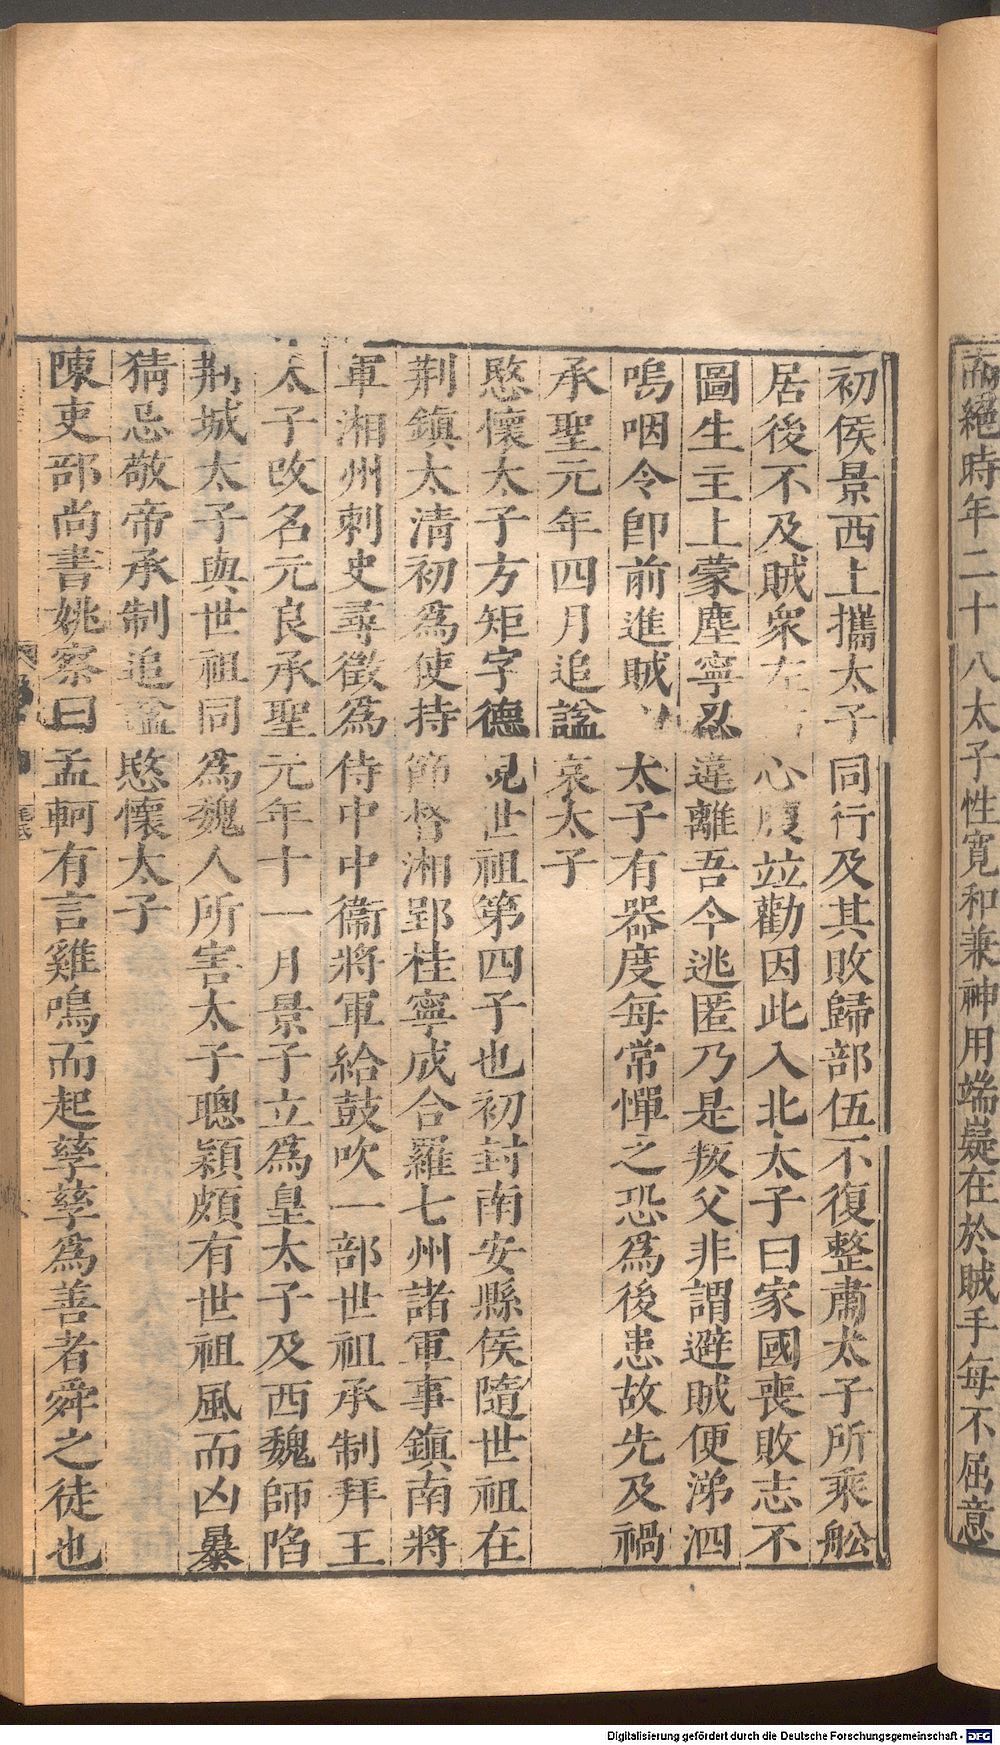 而絕時年二十八太子性寬和兼神用端嶷在於賊手每不屈意
初侯景西上攜太子同行及其敗歸部伍不復整肅太子所乘舩
居後不及賊衆左心腹竝勸因此入北太子曰家國喪敗志不
圖生主上蒙塵寧忍違離吾今逃匿乃是叛父非謂避賊便涕泗
嗚咽令卽前進賊太子有器度每常憚之恐爲後患故先及禍
承聖元年四月追諡哀太子
愍懷太子方矩字德䂓世祖第四子也初封南安縣侯隨世祖在
荆鎭太清初爲使持節督湘郢桂寧成合羅七州諸軍事鎭南將
軍湘州刺史尋徵爲侍中中衞將軍給鼓吹一部世祖承制拜王
太子改名元良承聖元年十一月景子立爲皇太子及西魏師陷
荆城太子與世祖同爲魏人所害太子聰穎頗有世祖風而凶暴
猜忌敬帝承制追諡愍懷太子
陳吏部尚書姚察曰孟軻有言雞鳴而起孳孳爲善者舜之徒也
Digitalisierung gefördert durch die Deutsche Forschungsgemeinschaft - DFG